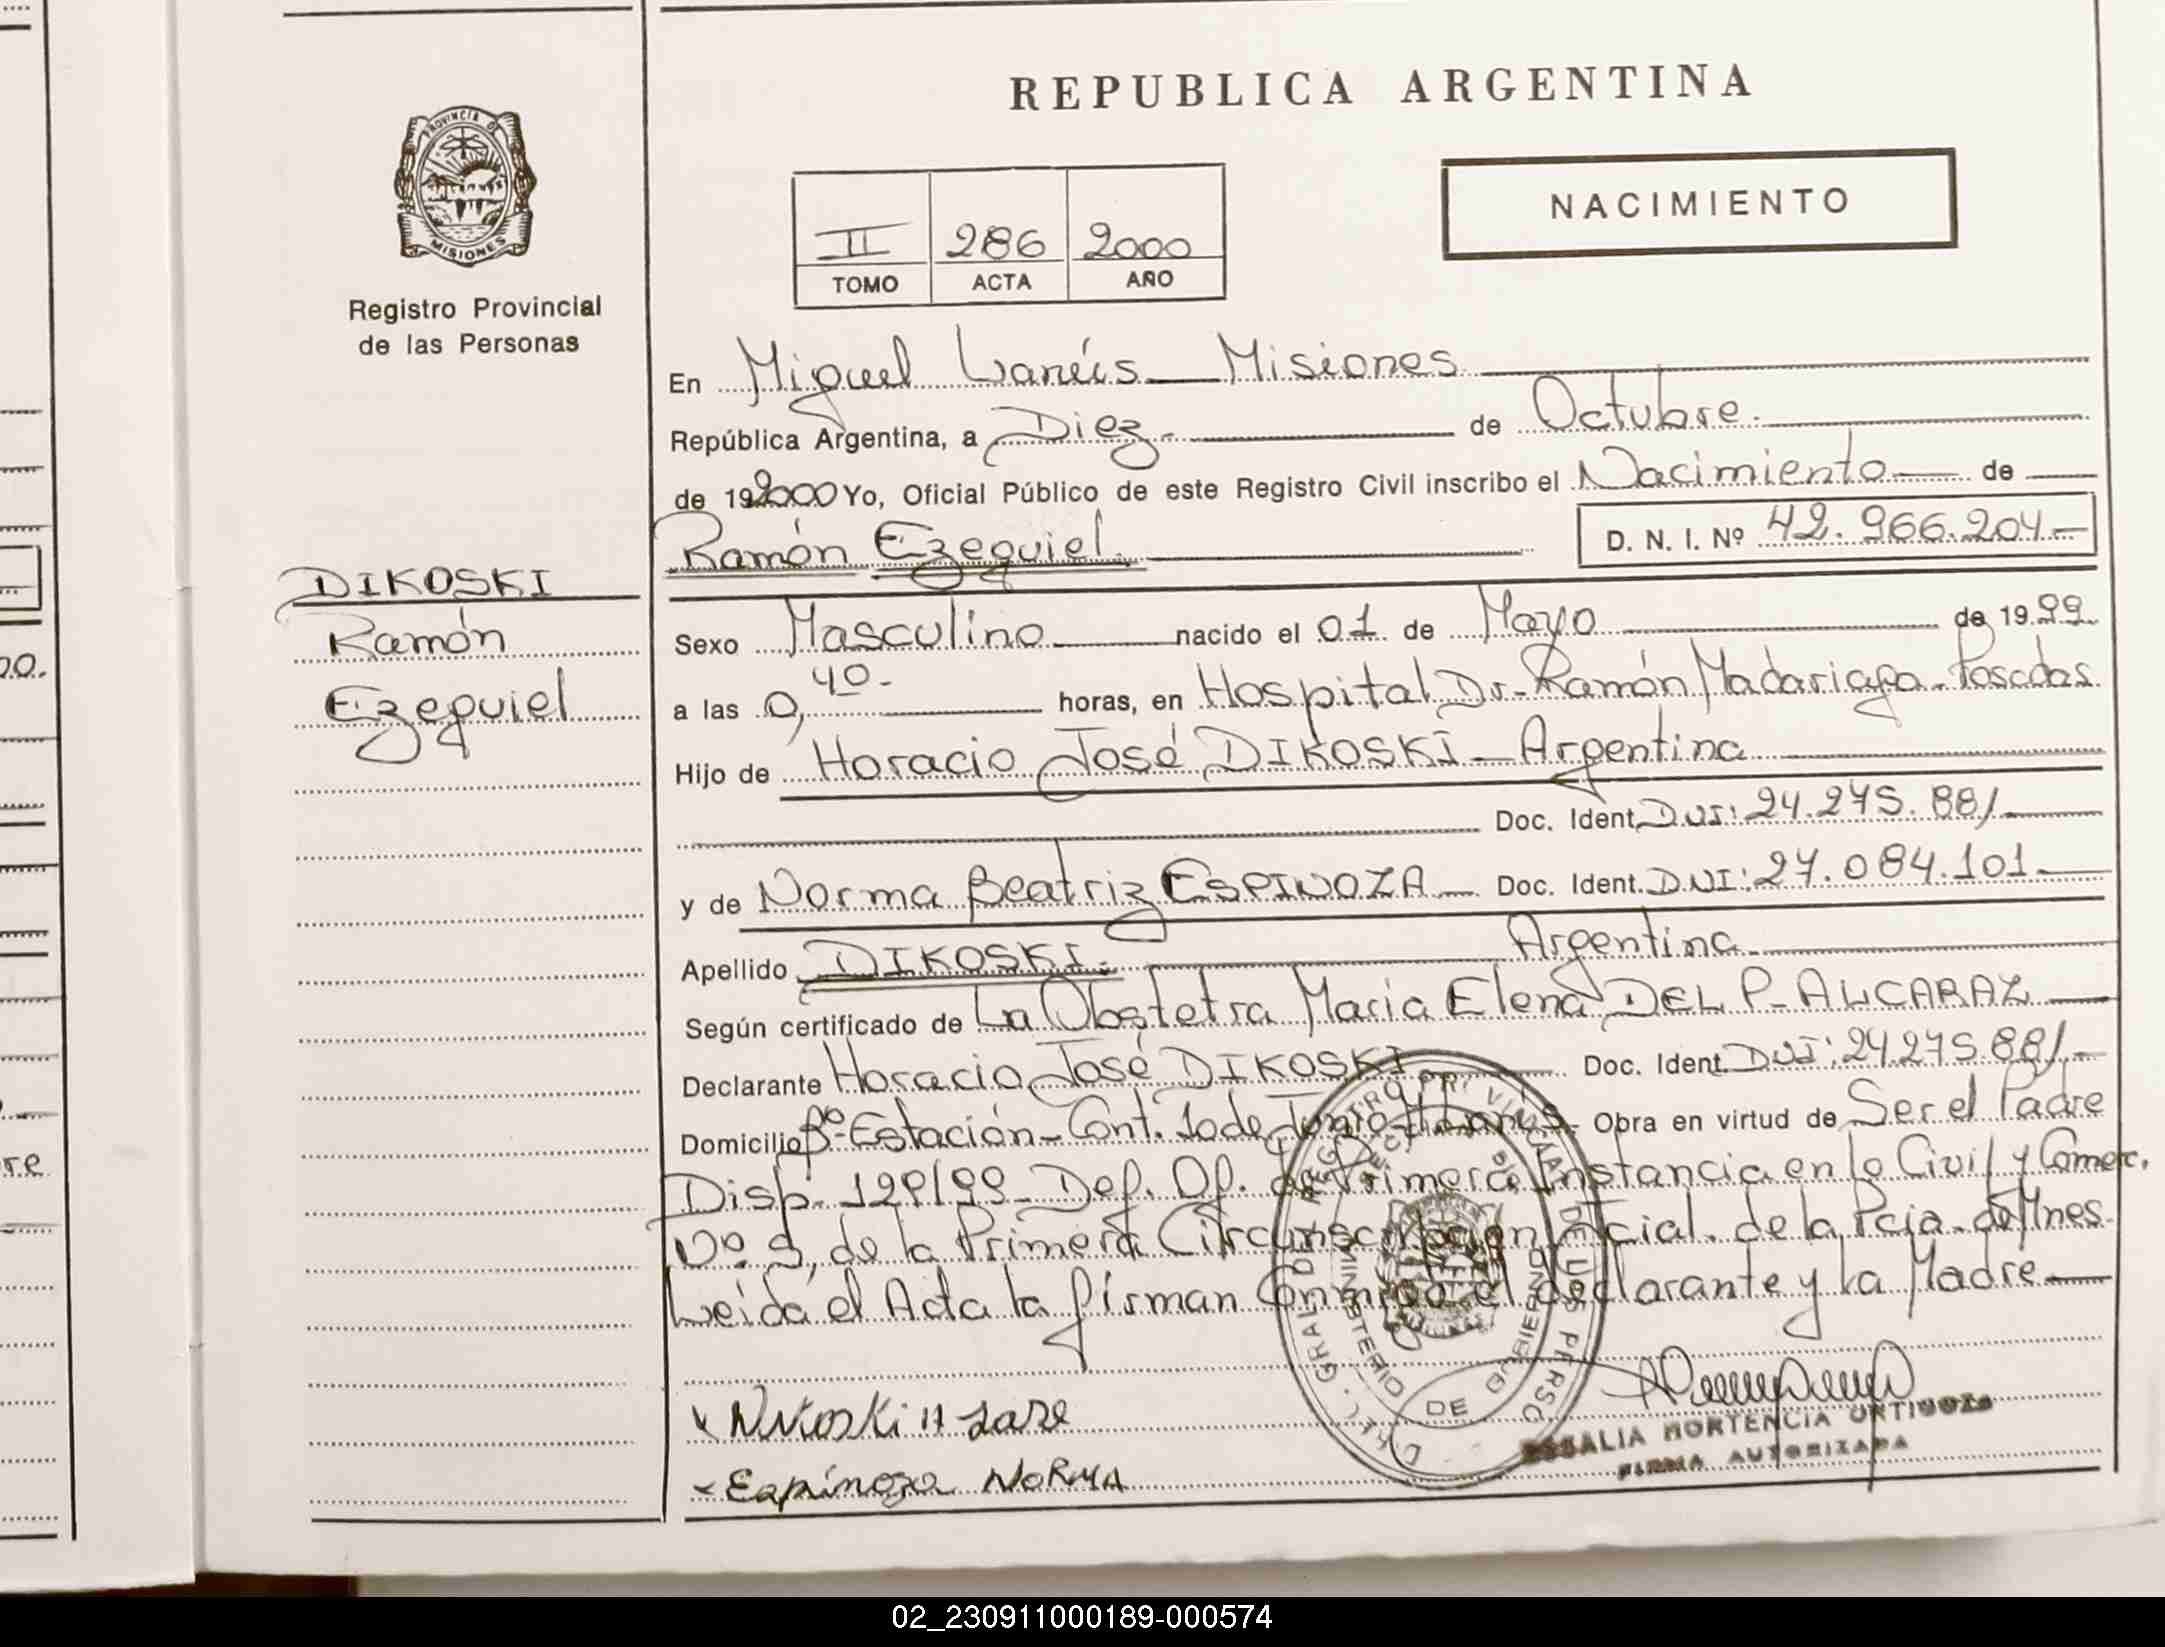 REPUBLICA ARGENTINA
PROVINCIA DE
MISIONES
Registro Provincial
de las Personas
II 286 2000
TOMO ACTA AÑO
NACIMIENTO
En Miguel Lanús - Misiones
República Argentina, a Diez - de Octubre.
de 192000 Yo, Oficial Público de este Registro Civil inscribo el Nacimiento de
Ramón Ezequiel. D. N. I. Nº 42.966.204-
DIKOSKI
Ramón
Ezequiel
Sexo Masculino nacido el 01 de Mayo de 1999
a las 0,40- horas, en Hospital Dr. Ramón Madariaga - Posadas
Hijo de Horacio José DIKOSKI - Argentina
Doc. Ident. DNI: 24.275.881
y de Norma Beatriz ESPINOZA - Doc. Ident. DNI: 27.084.101-
Apellido DIKOSKI. - Argentina
Según certificado de La Obstetra Maria Elena DEL P. ALCARAZ
Declarante Horacio José DIKOSKI Doc. Ident. DNI: 24.275.881.-
Domicilio Bº Estación - Cont. 1º de Junio - Lanús. Obra en virtud de Ser el Padre
Disp. 129/99 - Def. Of. de Primera Instancia en lo Civil y Comerc.
Nº. 5, de la Primera Circunscripción Jcial. de la Pcia. de Mnes.
Leida el Acta la firman Conmigo el declarante y la Madre
Dikoski H Jose
Espinoza NORMA
MINISTERIO DE GOBIERNO
HORTENCIA
FIRMA AUTORIZADA
re
02_230911000189-000574